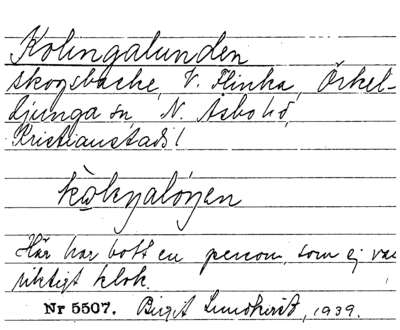 Kolingalunden
skogsbacke, V. Flinka, Örkel-
ljunga sn, N. Åsbo hd,
Kristianstads l

Här har bott en person, som ej var
riktigt klok.
Nr 5507. Birgit Lundkvist, 1939.